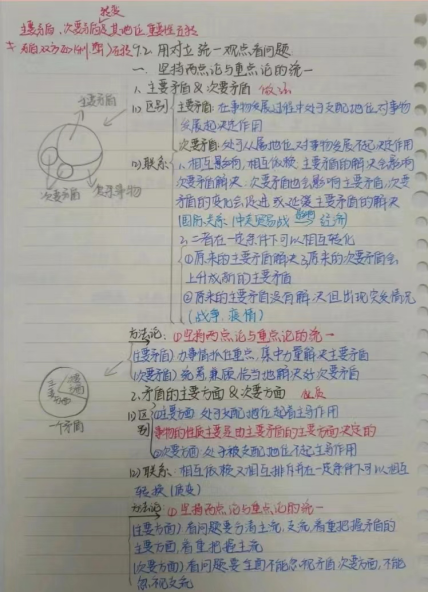 转变
主要方面、次要方面是其地位重要性互转
9.2.用对立统一观点看问题
一、坚持两点论与重点论的统一
1.主要矛盾&次要矛盾
主要矛盾
(1)区别
主要矛盾:在事物发展过程中处于支配地位,对事物
发展起决定作用
次要矛盾:处于从属地位,对事物发展不起决定作用
(2)联系:1.相互影响,相互依赖.主要矛盾的解决会影响
次要矛盾解决.次要矛盾也会影响主要矛盾,次要
矛盾的变化会促进或延缓主要矛盾的解决
次要矛盾
复杂事物
(国际关系:中美贸易战 经济)
2.二者在一定条件下可以相互转化
①原来的主要矛盾解决了,原来的次要矛盾会
上升成新的主要矛盾
②原来的主要矛盾没有解决,但出现突发情况
(战争、疫情)
方法论:①坚持两点论与重点论的统一
(主要矛盾)办事情抓住重点,集中力量解决主要矛盾
(次要矛盾)统筹兼顾,恰当地解决好次要矛盾
2.矛盾的主要方面&次要方面
一个矛盾
(1)区别
①主要方面:处于支配地位起着主导作用
事物的性质主要是由主要矛盾的主要方面决定的
②次要方面:处于被支配地位不起主导作用
(2)联系:相互依赖又相互排斥并在一定条件下可以相互
转换(质变)
方法论:①坚持两点论与重点论的统一
(主要方面)看问题要分清主流,支流,着重把握矛盾的
主要方面,着重把握主流
(次要方面)看问题要全面不能忽视矛盾次要方面,不能
忽视支流